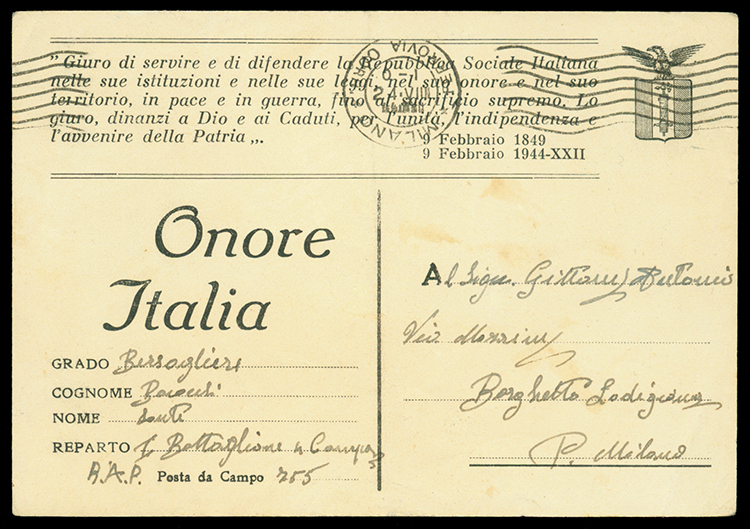 "Giuro di servire e di difendere la Repubblica Sociale Italiana
nelle sue istituzioni e nelle sue leggi, nel suo onore e nel suo
territorio, in pace e in guerra, fino al sacrificio supremo. Lo
giuro, dinanzi a Dio e ai Caduti, per l'unità, l'indipendenza e
l'avvenire della Patria „.
9 Febbraio 1849
9 Febbraio 1944-XXII
MILANO
FERROVIA
Onore
Italia
GRADO Bersagliere
COGNOME
NOME
REPARTO I Battaglione
R.A.P. Posta da Campo 755
Al Sign. Antonio
Via
Borghetto Lodigiano
P. Milano